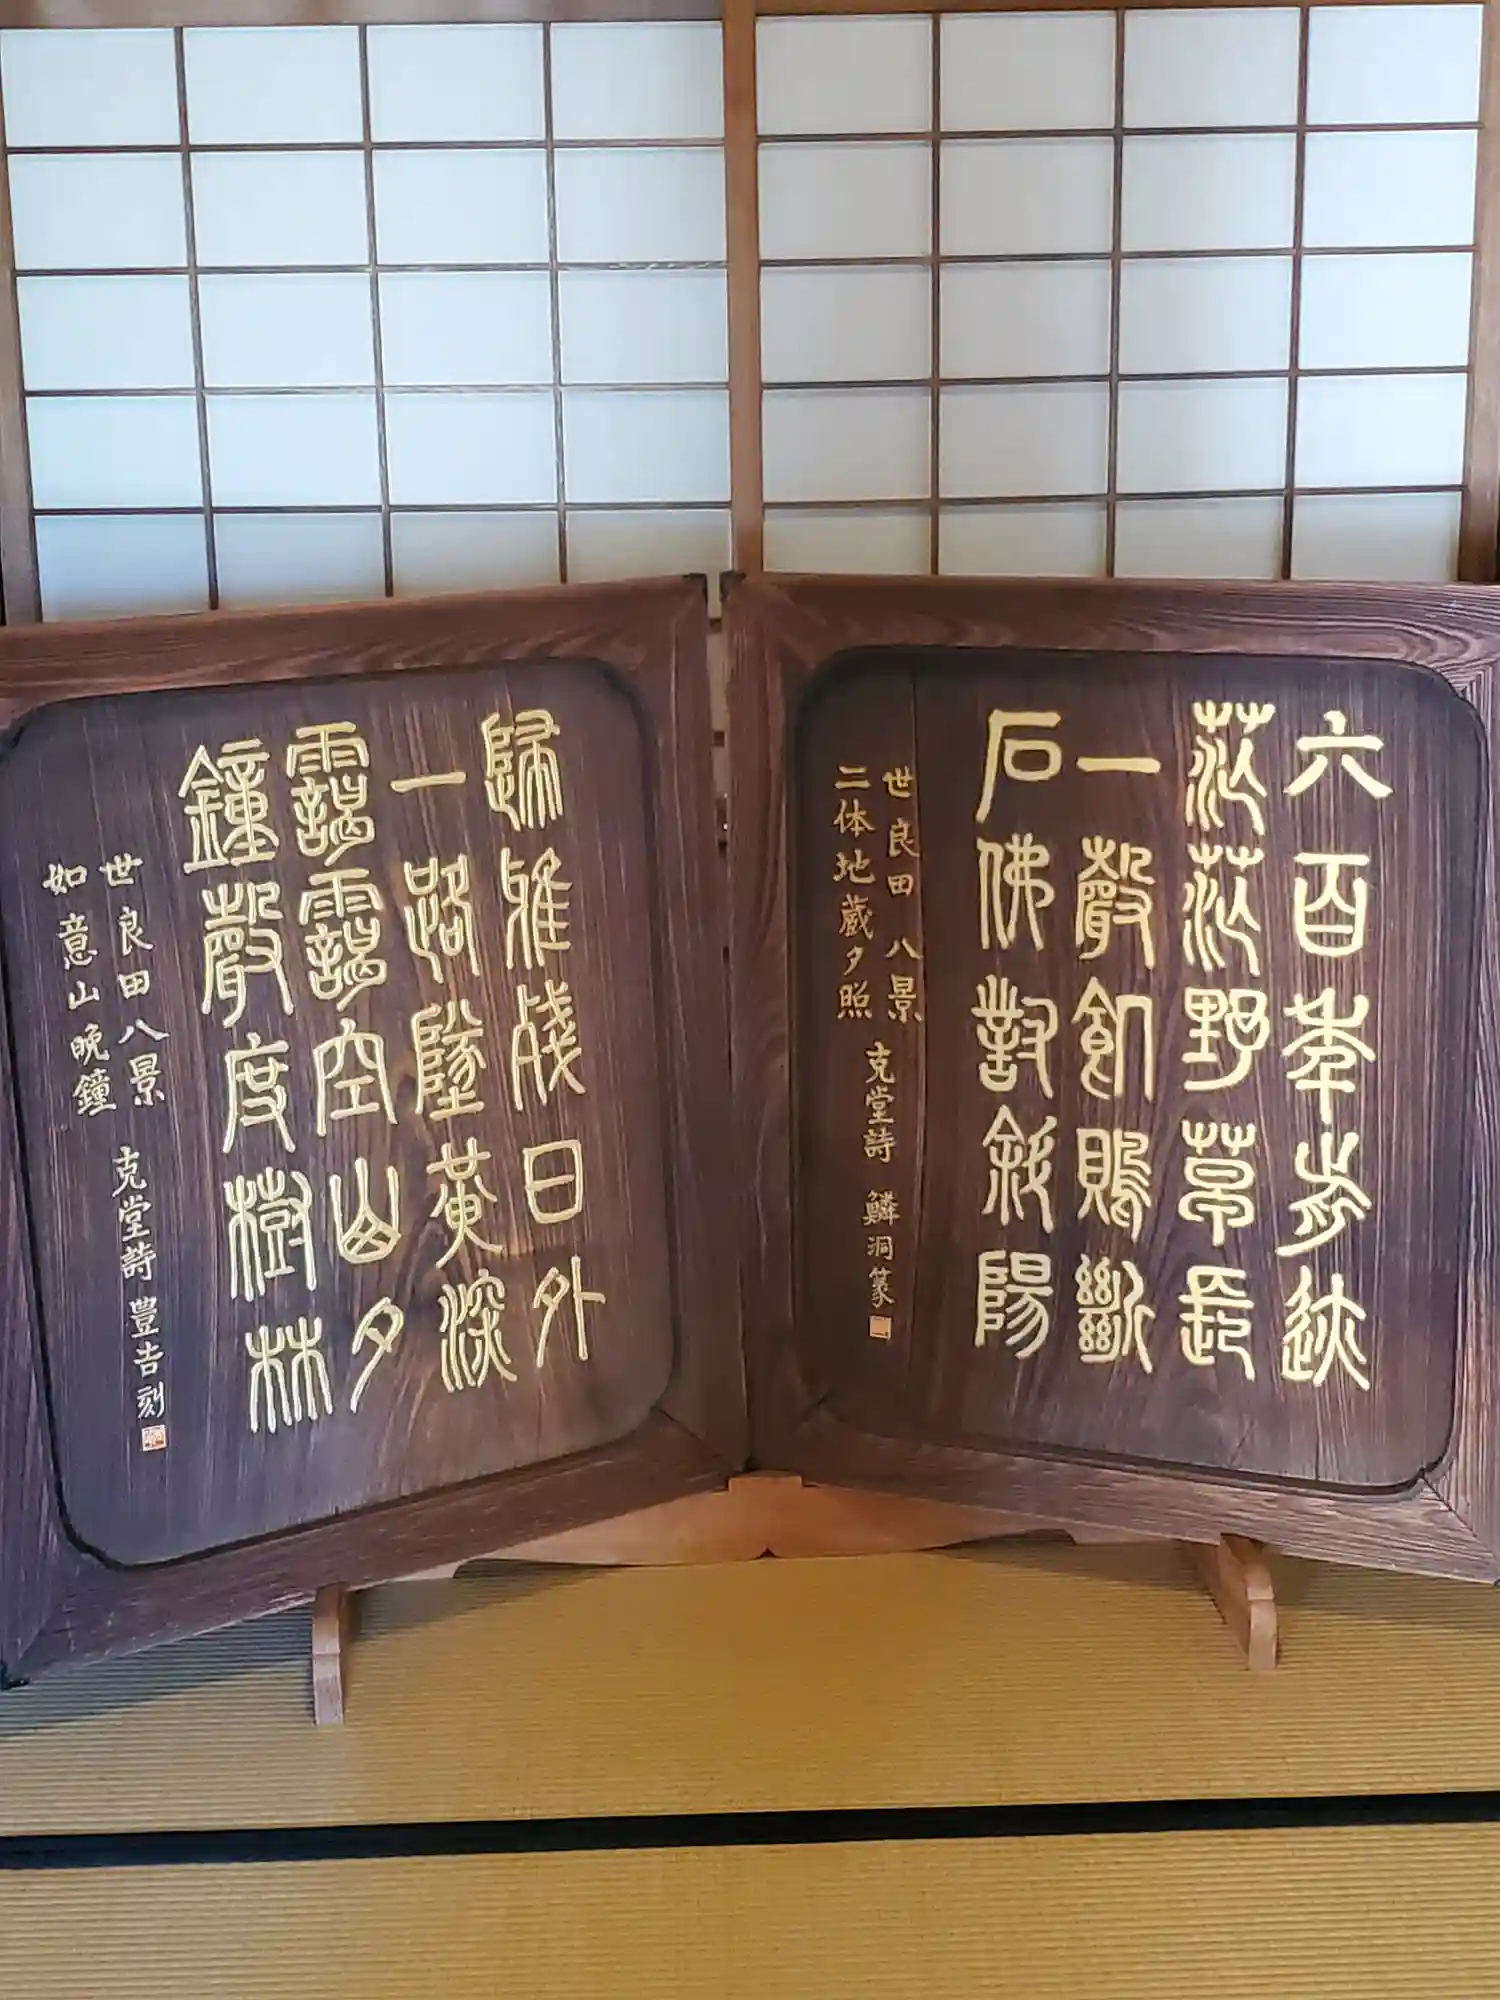 六百年前迹
茫茫野草長
一聲飢鵙斷
石佛對斜陽
世良田八景
二体地蔵夕照
克堂詩 鱗洞篆
歸雅殘日外
一路墜黄深
靄靄空山夕
鐘聲度樹林
世良田八景
如意山晩鐘
克堂詩 豊吉刻